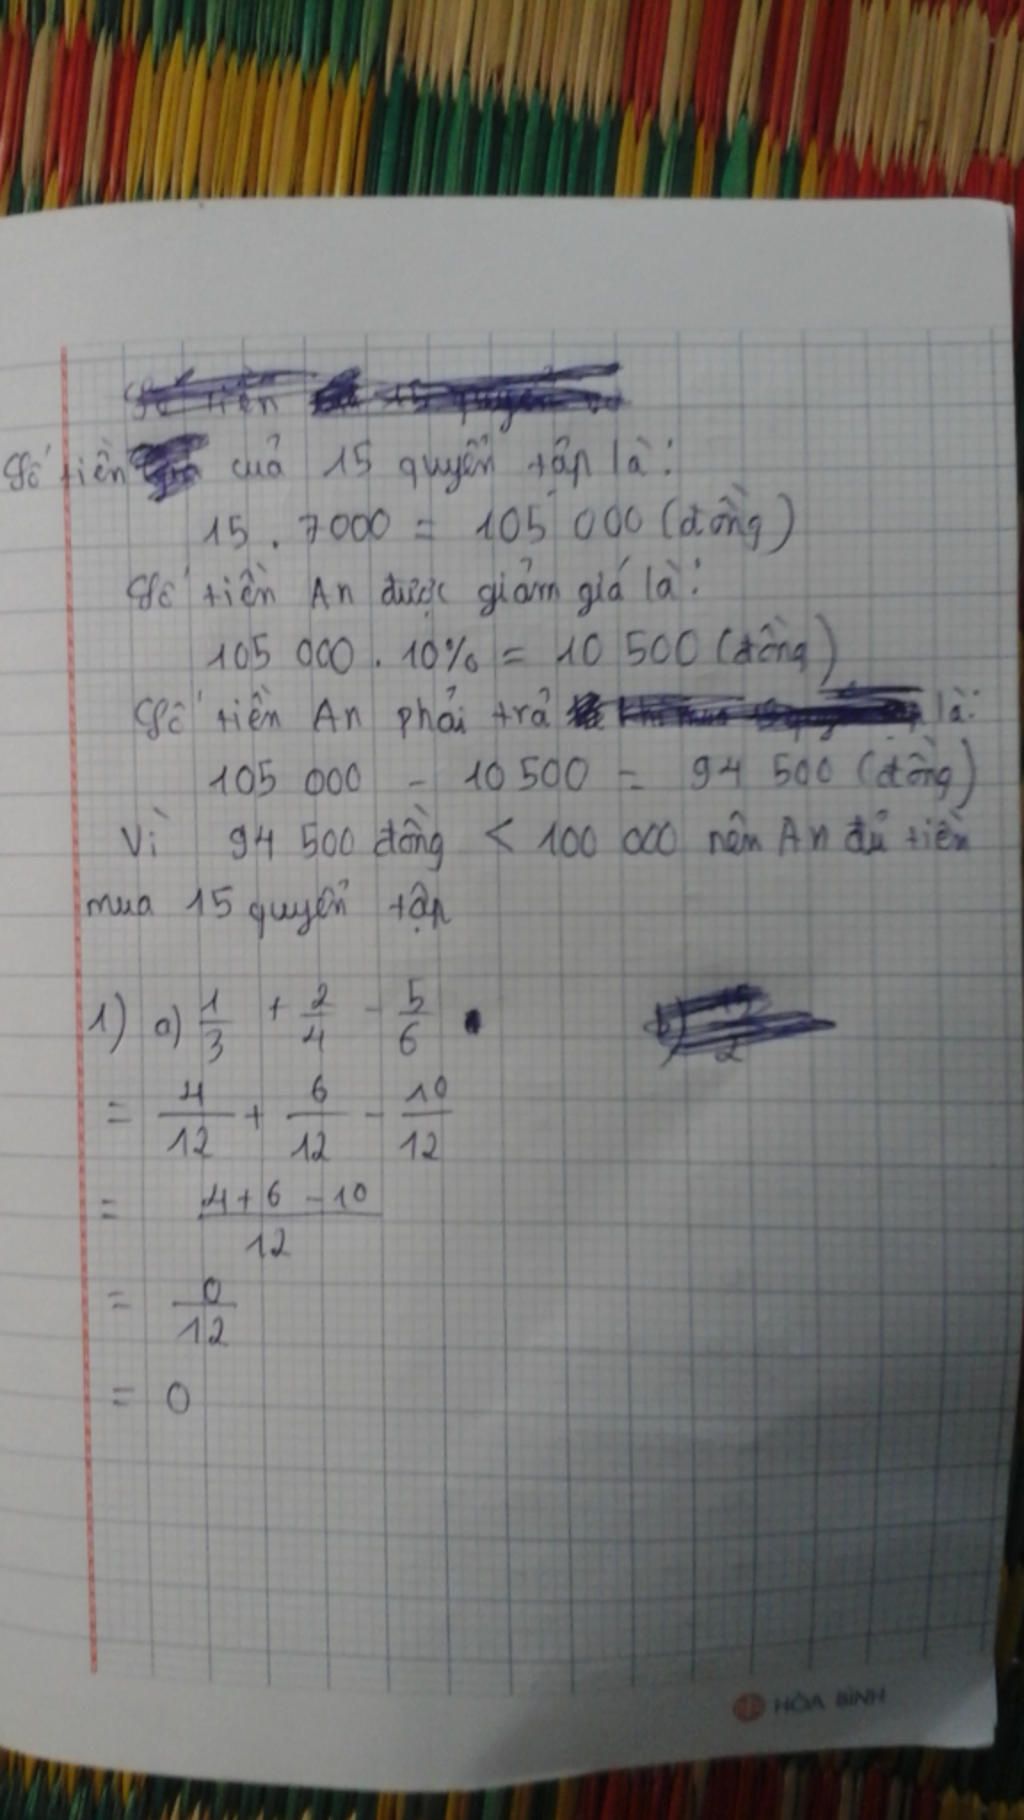 Số tiền của 15 quyển tập là:
15 . 7000 = 105 000 (đồng)
Số tiền An được giảm giá là:
105 000 . 10% = 10 500 (đồng)
Số tiền An phải trả là:
105 000 - 10 500 = 94 500 (đồng)
Vì 94 500 đồng < 100 000 nên An đủ tiền
mua 15 quyển tập
1) a) 1/3 + 2/4 - 5/6
= 4/12 + 6/12 - 10/12
= (4 + 6 - 10)/12
= 0/12
= 0
HÒA BÌNH